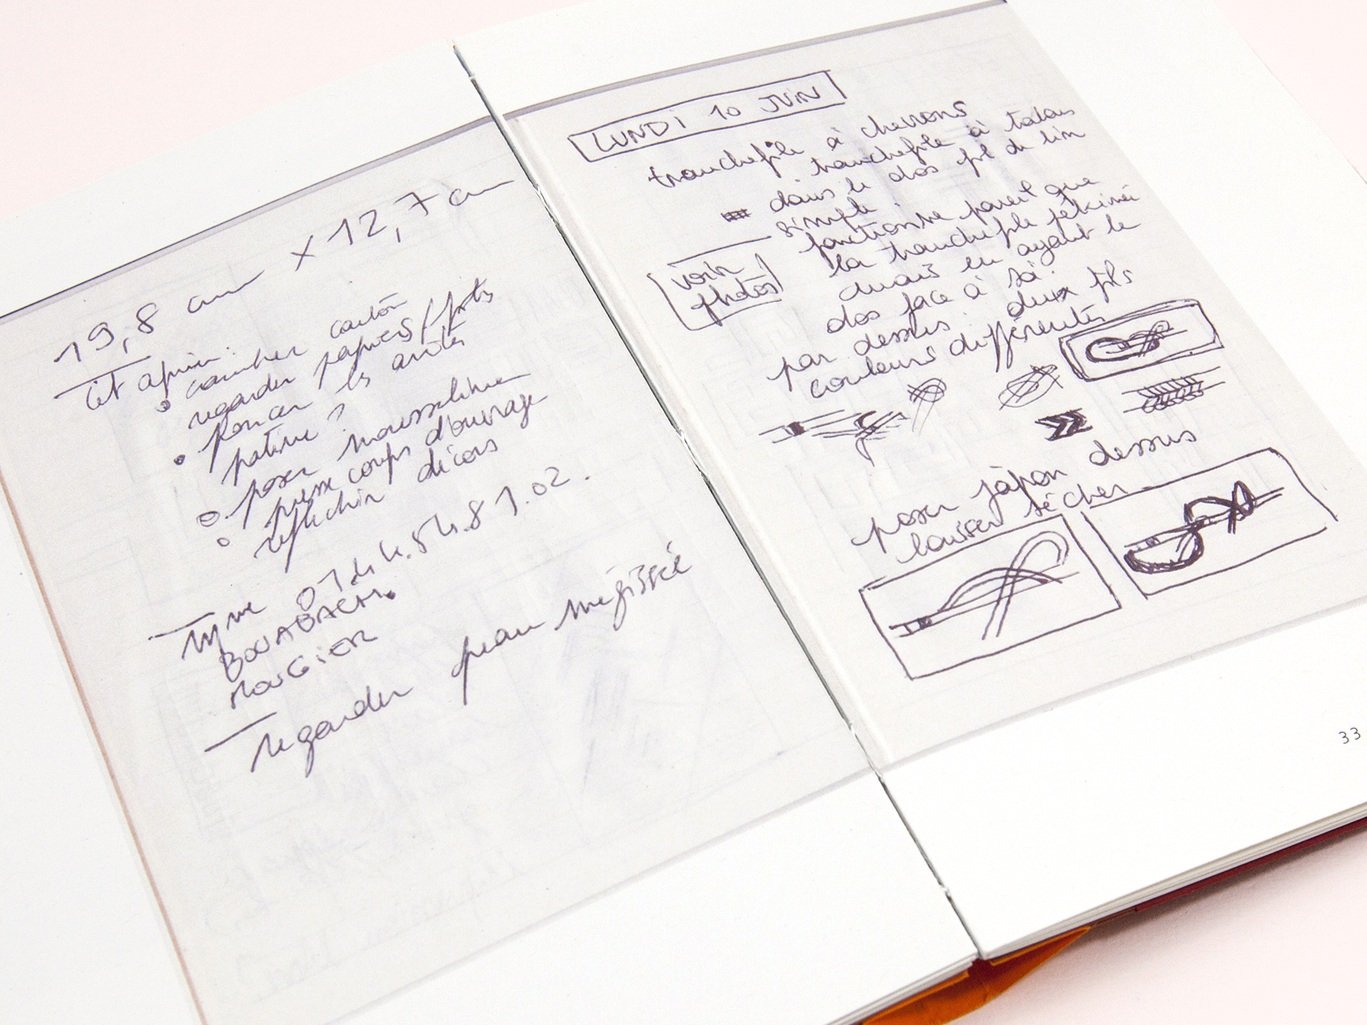 19,8 cm × 12,7 cm
cet aprèm :
cambrer carton
regarder papiers/pots
poncer les arrêts
patine ?
poser mousseline
presse corps d'ouvrage
réfléchir décors
Mme
BOUABACH.
MOUGIER
regarder peau mégissée
LUNDI 10 JUIN
tranchefile à chevrons
= tranchefile à talons
dans le dos fil de lin
simple.
fonctionne pareil que
la tranchefile pékiné
mais en ayant le
dos face à soi.
par dessus : deux fils
couleurs différentes
voir
photos
poser japon dessus
laisser sécher
33